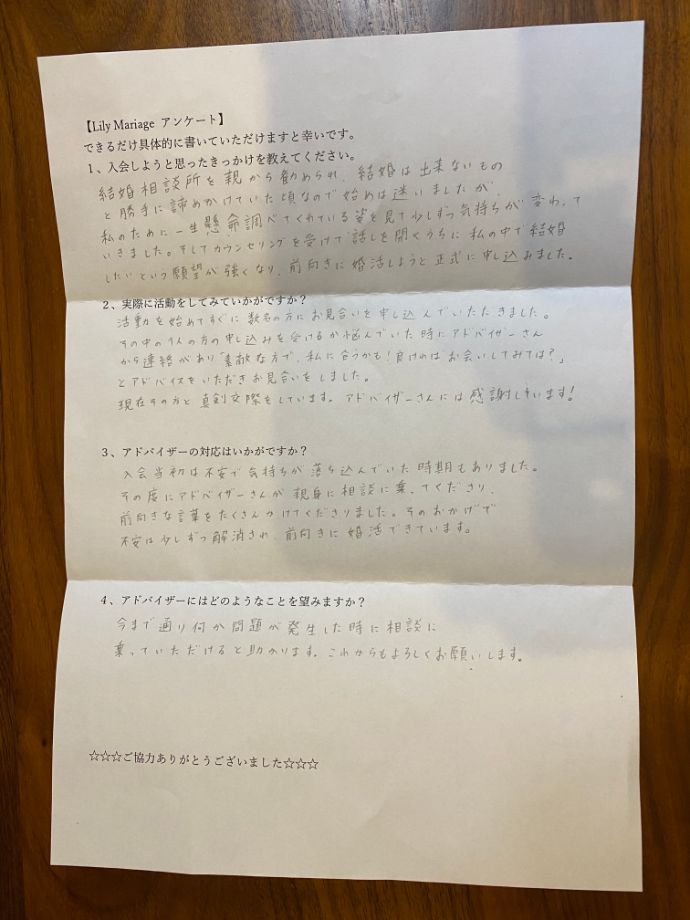 【Lily Mariage アンケート】
できるだけ具体的に書いていただけますと幸いです。
1、入会しようと思ったきっかけを教えてください。
結婚相談所を親から勧められ、結婚は出来ないもの
と勝手に諦めかけていた頃なので始めは迷いましたが、
私のために一生懸命調べてくれている姿を見て少しずつ気持ちが変わって
いきました。そしてカウンセリングを受けて話しを聞くうちに私の中で結婚
したいという願望が強くなり、前向きに婚活しようと正式に申し込みました。
2、実際に活動をしてみていかがですか？
活動を始めてすぐに数名の方にお見合いを申し込んでいただきました。
その中の1人の方の申し込みを受けるか悩んでいた時にアドバイザーさん
から連絡があり「素敵な方で、私に合うかも！良ければお会いしてみては？」
とアドバイスをいただきお見合いをしました。
現在その方と真剣交際をしています。アドバイザーさんには感謝しています！
3、アドバイザーの対応はいかがですか？
入会当初は不安で気持ちが落ち込んでいた時期もありました。
その度にアドバイザーさんが親身に相談に乗ってくださり、
前向きな言葉をたくさんかけてくださりました。そのおかげで
不安は少しずつ解消され、前向きに婚活できています。
4、アドバイザーにはどのようなことを望みますか？
今まで通り何か問題が発生した時に相談に
乗っていただけると助かります。これからもよろしくお願いします。
☆☆☆ご協力ありがとうございました☆☆☆